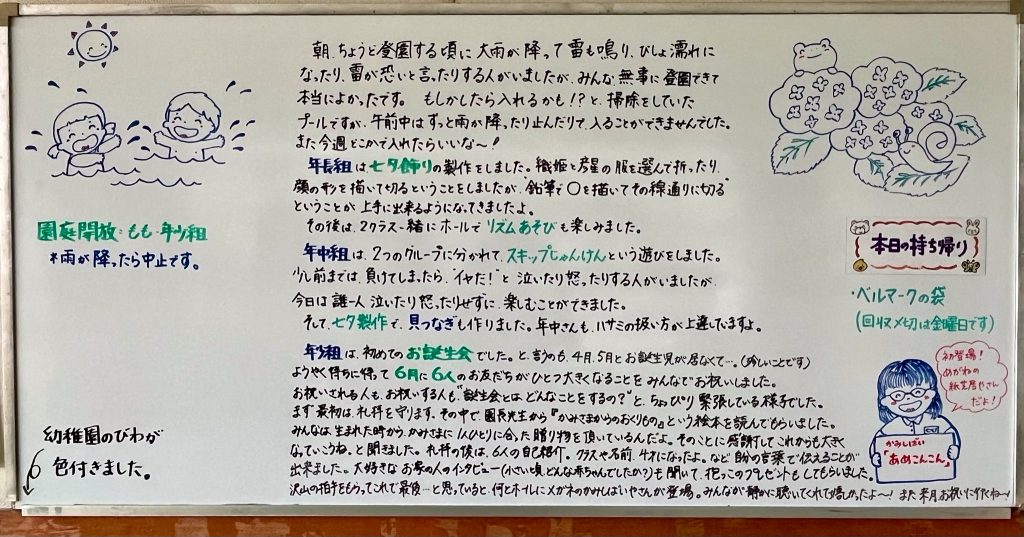 朝、ちょうど登園する頃に大雨が降って雷も鳴り、びしょ濡れに
なったり、雷が恐いと言ったりする人がいましたが、みんな無事に登園できて
本当によかったです。 もしかしたら入れるかも!?と、掃除をしていた
プールですが、午前中はずっと雨が降ったり止んだりで、入ることができませんでした。
また今週どこかで入れたらいいな~!
年長組は、七夕飾りの製作をしました。織姫と彦星の服を選んで折ったり、
顔の形を描いて切るということをしましたが、"鉛筆で〇を描いてその線通りに切る"
ということが、上手に出来るようになってきましたよ。
その後は、2クラス一緒にホールでリズムあそびも楽しみました。
年中組は、2つのグループに分かれて、スキップじゃんけんという遊びをしました。
少し前までは、負けてしまったら、"イヤだ!"と泣いたり怒ったりする人がいましたが、
今日は誰一人泣いたり怒ったりせずに、楽しむことができました。
そして、七夕製作で、貝つなぎも作りました。年中さんも、ハサミの扱い方が上達していますよ。
年少組は、初めてのお誕生会でした。と、言うのも、4月、5月とお誕生児が居なくて…。(珍しいことです)
ようやく待ちに待って6月に6人のお友だちがひとつ大きくなることをみんなでお祝いしました。
お祝いされる人も、お祝いする人も、"誕生会とは、どんなことをするの?"と、ちょっぴり緊張している様子でした。
まず最初は、礼拝を守ります。その中で、園長先生から『かみさまからのおくりもの』という絵本を読んでもらいました。
みんなは、生まれた時から、かみさまに1人ひとりに合った贈り物を頂いているんだよ。そのことに感謝してこれからも大きく
なっていこうね、と聞きました。礼拝の後は、6人の自己紹介。クラスや名前、4才になったよ。など自分の言葉で伝えることが
出来ました。大好きなお家の人のインタビュー(小さい頃どんな赤ちゃんでしたか?)も聞いて、抱っこのプレゼントもしてもらいました。
沢山の拍手をもらってこれで最後…と思っていると、何とホールにメガネのかみしばいやさんが登場。みんなが静かに聴いてくれて嬉しかったよ~! また来月お祝いにくるね~!
園庭開放:もも・年少組
*雨が降ったら中止です。
幼稚園のびわが
色付きました。
本日の持ち帰り
・ベルマークの袋
(回収〆切は金曜日です)
初登場!
めがねの
紙芝居やさん
だよ!
かみしばい
「あめこんこん」